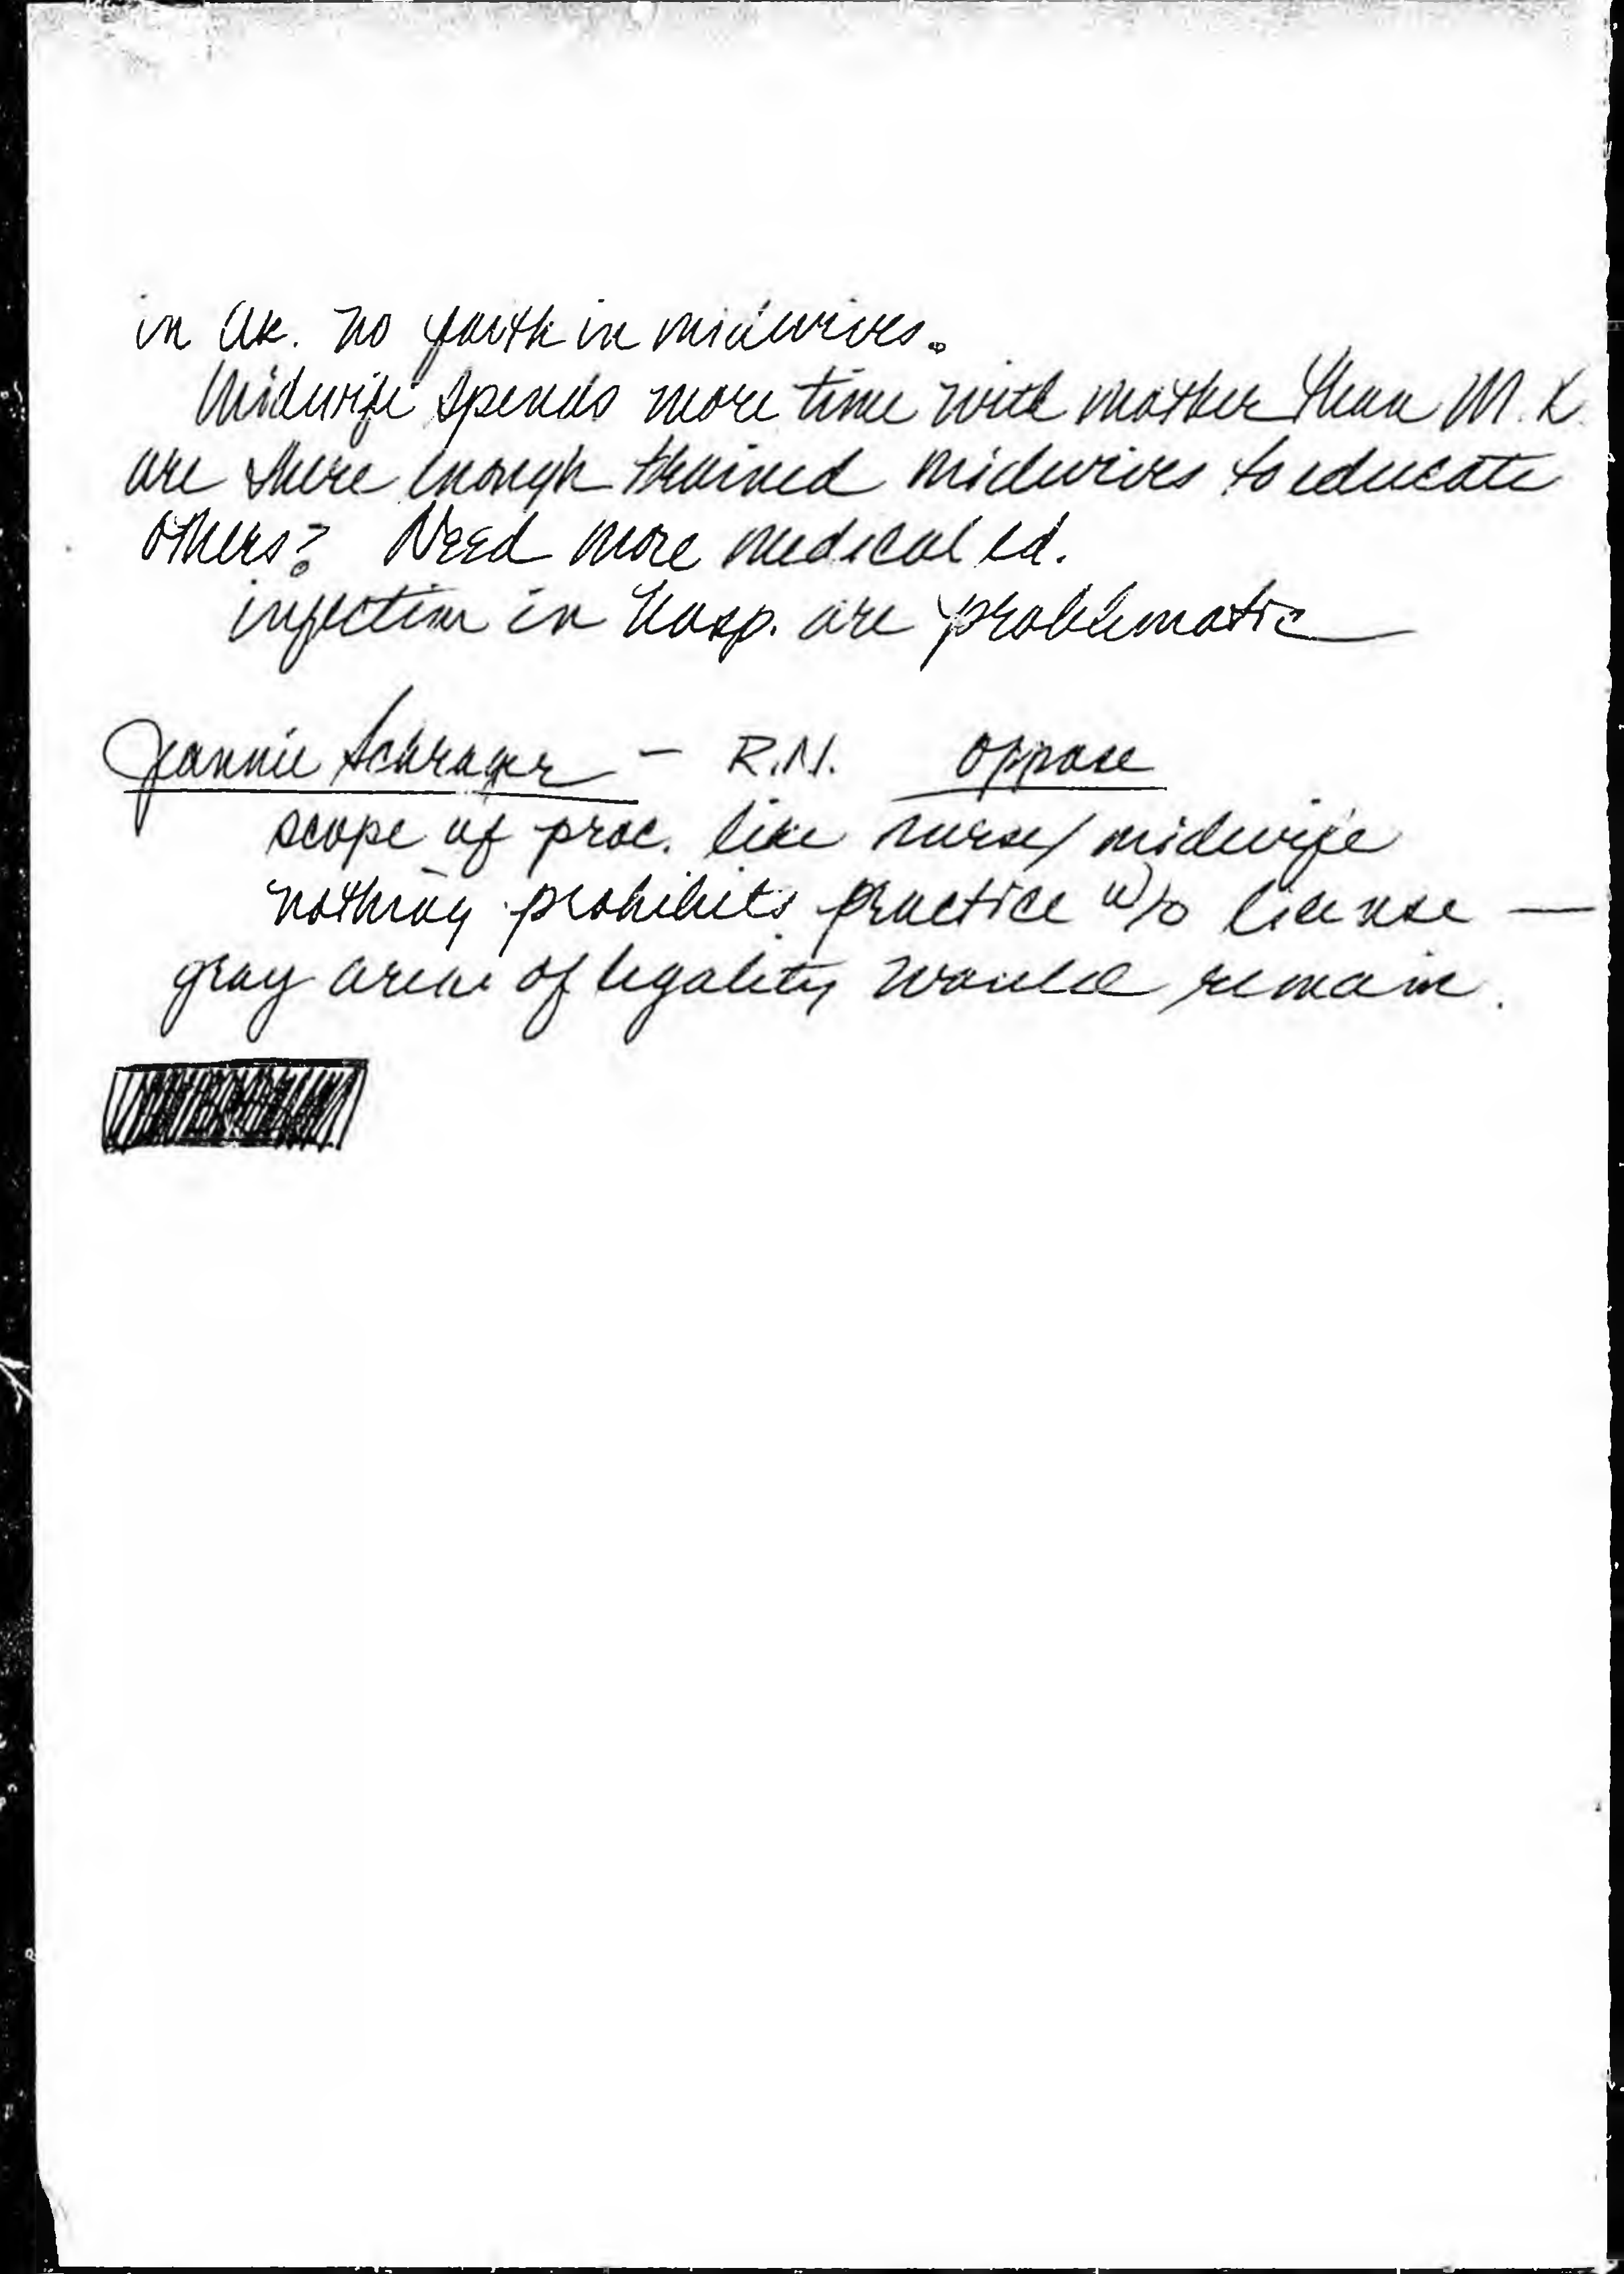 in Ak. no faith in midwives.
Midwife spends more time with mother than M.D.
are there enough trained midwives to educate
others? Need more medical ed.
infection in hosp. are problematic
Jeannie Schrager - R.N. oppose
scope of prac. like nurse/midwife
nothing prohibits practice w/o license —
gray area of legality would remain.